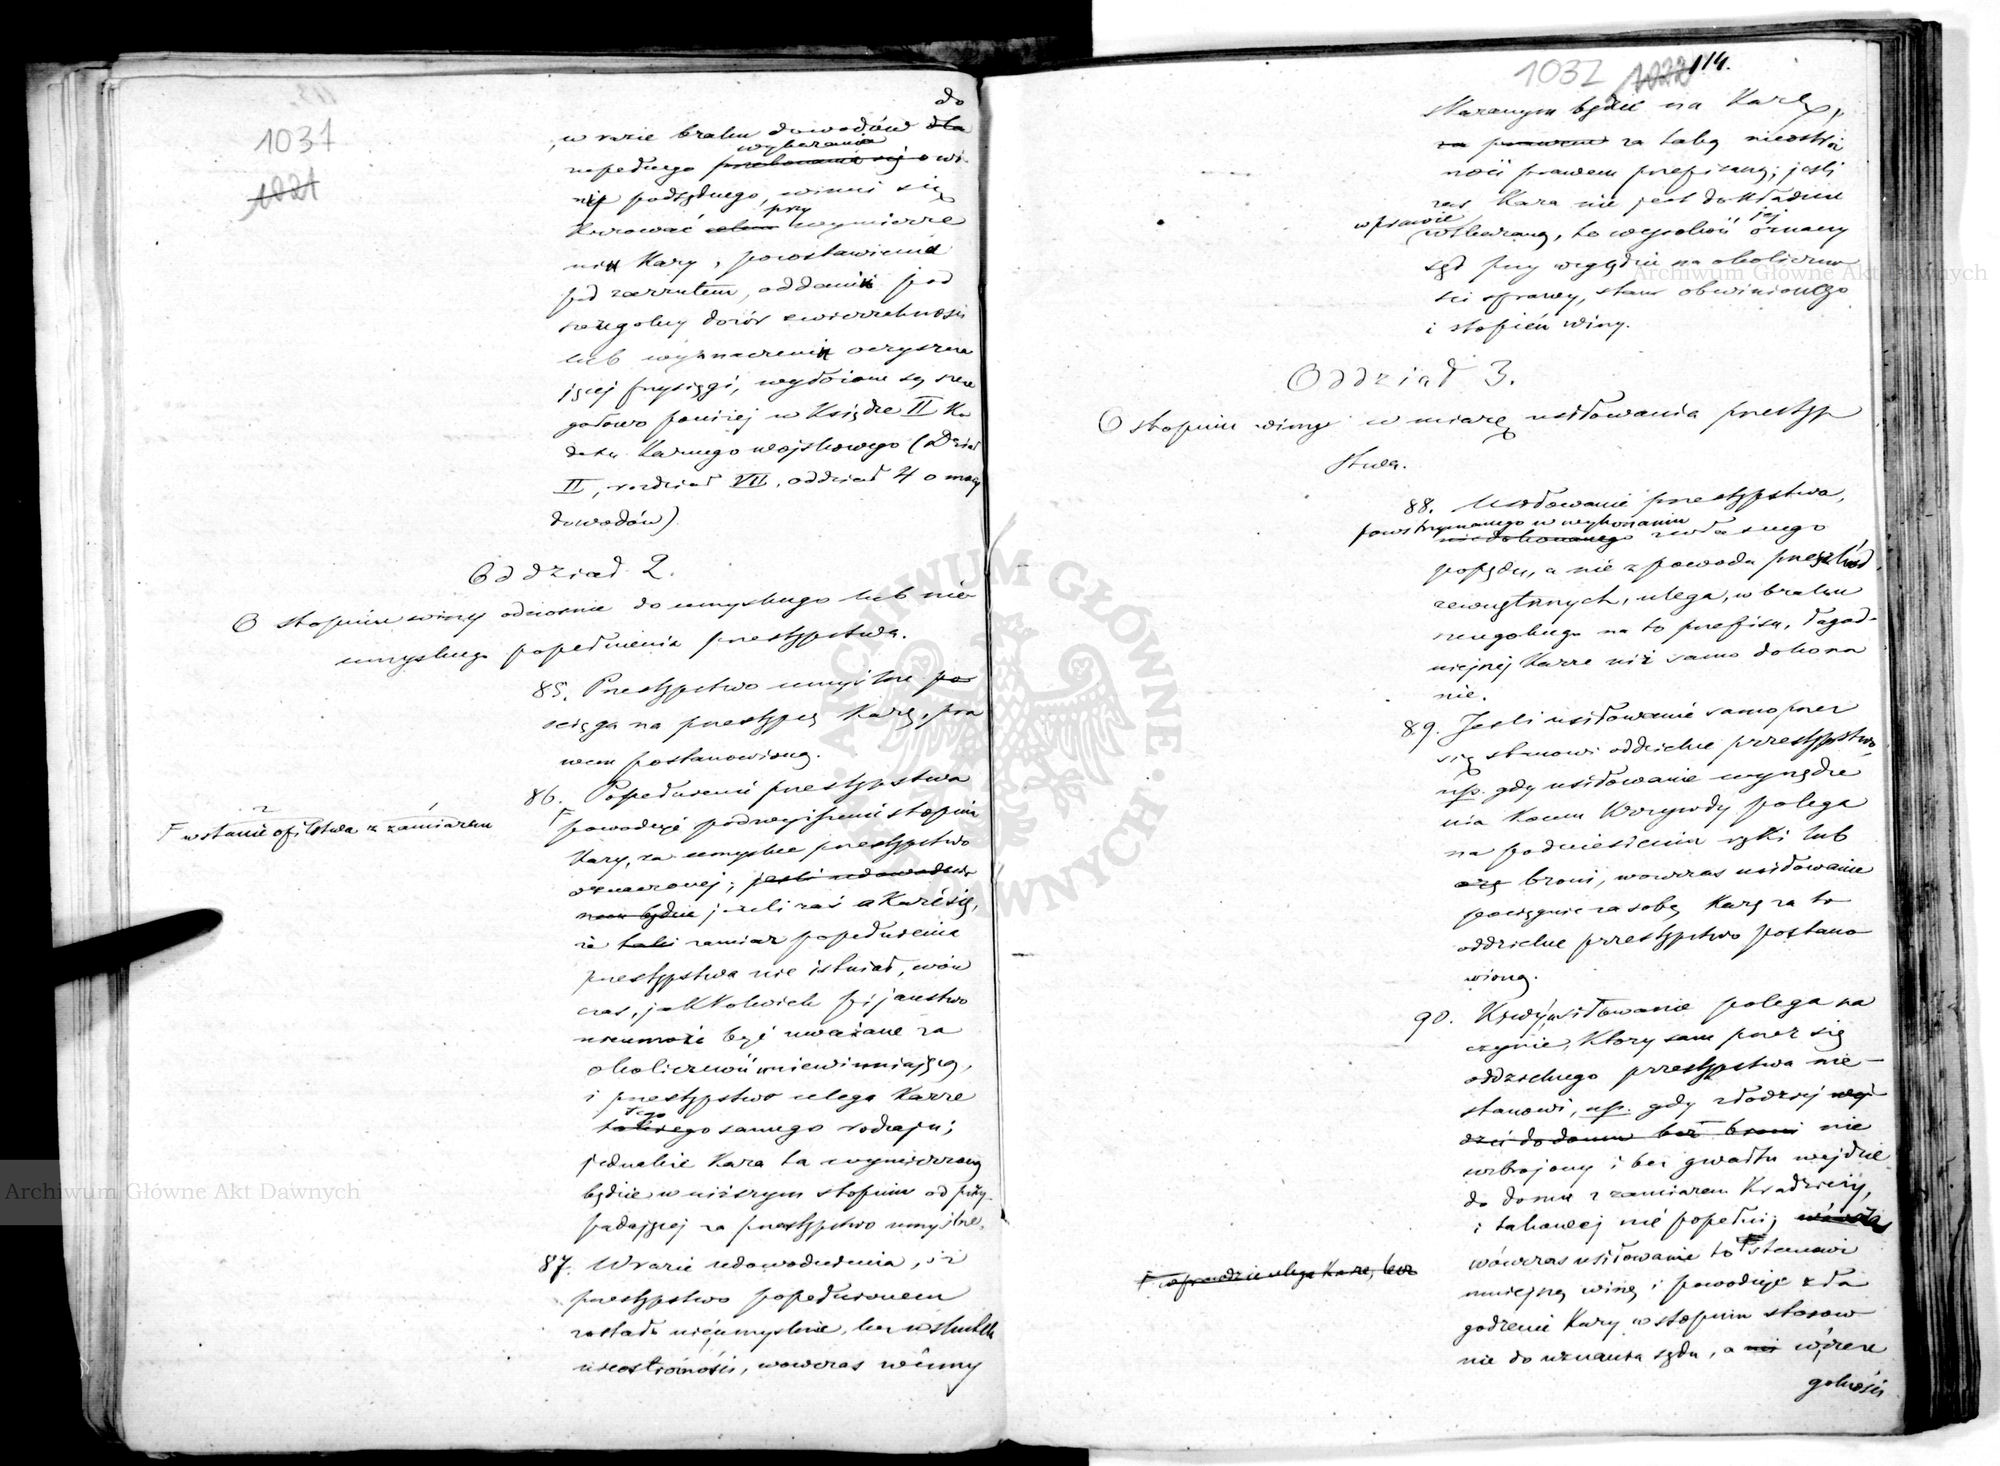 1031
1021
do
w razie braku dowodów dla
wykazania
zupełnego przekonania się o wi-
nie podsądnego, winni się
przy
kierować wymierze
niu kary, pozostawienia
pod zarzutem, oddania pod
szczególny dozór zwierzchności
lub wyznaczenia oczyszcza
jącej przysięgi, wyłożone są szcze
gółowo poniżej w Księdze II Ko
deksu Karnego wojskowego (Dział
II, rozdział VII, oddział 4 o mocy
dowodów).
Oddział 2.
O stopniu winy odnośnie do umyślnego lub nie
umyślnego popełnienia przestępstwa.
85. Przestępstwo umyślne po
ciąga na przestępcę karę, pra
wem postanowioną.
86. Popełnienie przestępstwa
F w stanie opilstwa z zamiarem
F powoduje podwyższenie stopnia
kary, za umyślne przestępstwo
oznaczonej; jeśli udowodnio
nem będzie jeżeli zaś okaże się,
że taki zamiar popełnienia
przestępstwa nie istniał, wów
czas, jakkolwiek pijaństwo
nie może być uważane za
okoliczność uniewinniającą,
i przestępstwo ulega karze
tego
takiego samego rodzaju;
jednakże kara ta wymierzoną
będzie w niższym stopniu od przy-
padającej za przestępstwo umyślne.
87. W razie udowodnienia, iż
przestępstwo popełnionem
zostało nieumyślnie, lecz w skutek
nieostrożności, wówczas winny
1032 1022 114.
skazanym będzie na karę,
za taką nieostroż
ność prawem przepisaną; jeśli
zaś kara nie jest dokładnie
w prawie jej
wskazaną, to wysokość oznaczy
sąd przy względzie na okoliczno
ści sprawy, stan obwinionego
i stopień winy.
Oddział 3.
O stopniu winy w miarę usiłowania przestęp
stwa.
88. Usiłowanie przestępstwa,
powstrzymanego w wykonaniu
niedokonanego z własnego
popędu, a nie z powodu przeszkód
zewnętrznych, ulega, w braku
szczególnego na to przepisu, łagod-
niejszej karze niż samo dokona
nie.
89. Jeśli usiłowanie samo przez
się stanowi oddzielne przestępstwo,
np. gdy usiłowanie wyrządze
nia komu krzywdy polega
na podniesieniu ręki lub
broni, wówczas usiłowanie
pociągnie za sobą karę za to
oddzielne przestępstwo postano
wioną.
90. usiłowanie polega na
czynie, który sam przez się
oddzielnego przestępstwa nie-
stanowi, np. gdy złodziej wej
dzie do domu bez broni nie
uzbrojony i bez gwałtu wejdzie
do domu z zamiarem kradzieży,
i takowej nie popełni, wówczas
wówczas usiłowanie to F stanowi
F wprawdzie ulega karze, lecz
mniejszą winę i powoduje zła
godzenie kary w stopniu stosow
nie do uznania sądu, a w szcze
gólności
ARCHIWUM GŁÓWNE AKT DAWNYCH
Archiwum Główne Akt Dawnych
Archiwum Główne Akt Dawnych